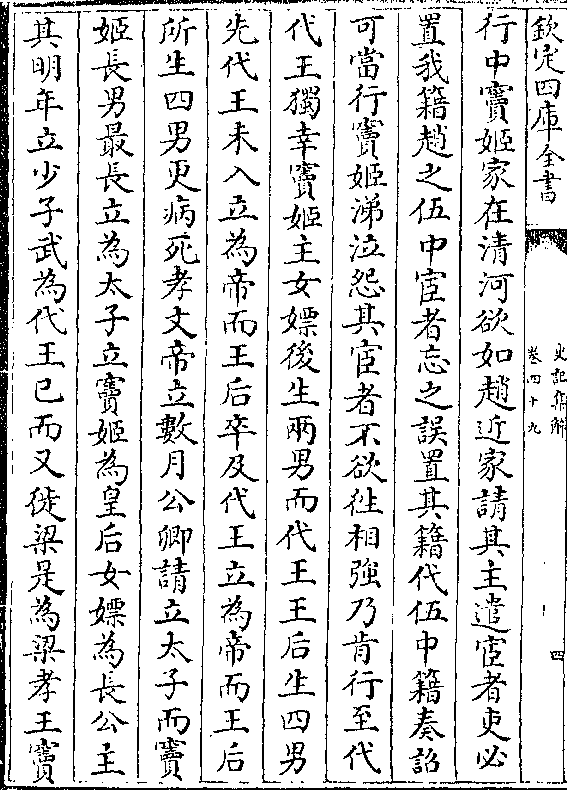 欽定四庫全書
史記集解
卷四十九
四
行中竇姬家在清河欲如趙近家請其主遣宦者吏必
置我籍趙之伍中宦者忘之誤置其籍代伍中籍奏詔
可當行竇姬涕泣怨其宦者不欲徃相強乃肯行至代
代王獨幸竇姬主女嫖後生兩男而代王王后生四男
先代王未入立為帝而王后卒及代王立為帝而王后
所生四男更病死孝文帝立數月公卿請立太子而竇
姬長男最長立為太子立竇姬為皇后女嫖為長公主
其明年立少子武為代王已而又徙梁是為梁孝王竇